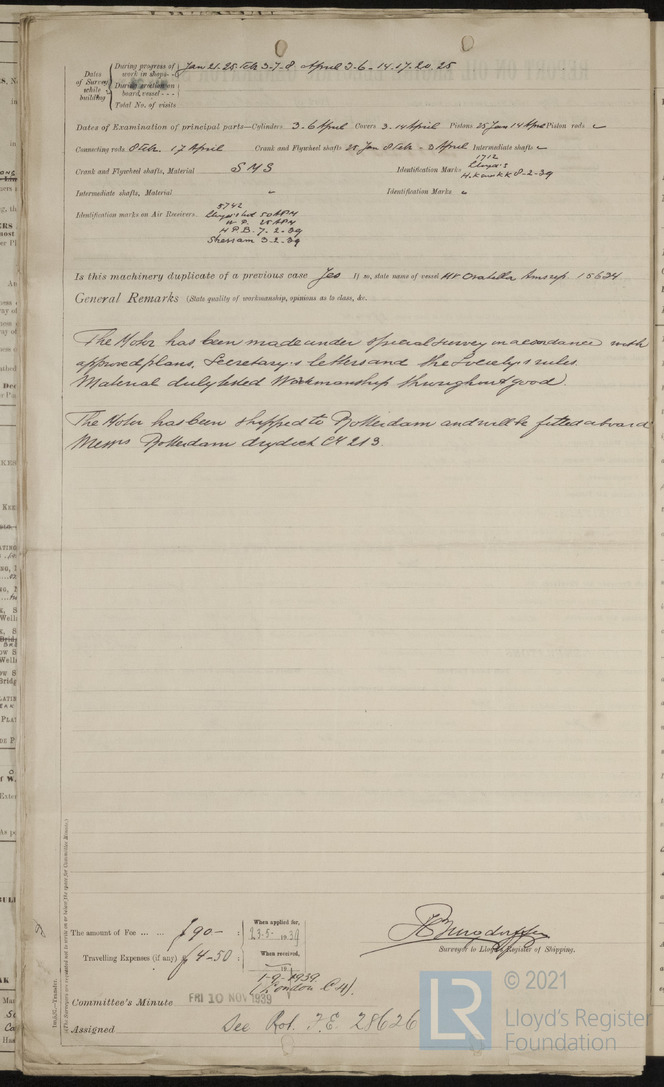 Dates of Survey while building
During progress of work in shops - - Jan 21. 25 Feb 3-7-8. April 3-6-14-17-20. 25
During erection on board vessel - - -
Total No. of visits
Dates of Examination of principal parts—Cylinders 3-6 April Covers 3-14 April Pistons 25 Jan 14 Apr Piston rods
Connecting rods 8 Feb. 17 April Crank and Flywheel shafts 25 Jan 8 Feb - 3 April Intermediate shafts
Crank and Flywheel shafts, Material S M S Identification Marks 1712
Lloyd's
8-2-39
Intermediate shafts, Material Identification Marks
Identification marks on Air Receivers. 5742
Lloyd's
W.P.
H.P.B. 7-2-39
3-2-39
Is this machinery duplicate of a previous case Yes If so, state name of vessel Ovatella 15624
General Remarks (State quality of workmanship, opinions as to class, &c.
The Motor has been made under special survey in accordance with
approved plans, Secretary's letters and the Society's rules.
Material duly tested Workmanship throughout good
The Motor has been shipped to Rotterdam and will be fitted aboard
Messrs Rotterdam drydock CH 213.
The amount of Fee ... ... £ 90- : When applied for, 23-5-1939
Travelling Expenses (if any) £ 4-50 : When received,
19
1-9-1939
(London
Surveyor to Lloyd's Register of Shipping.
Committee's Minute FRI 10 NOV 1939
Assigned See Rot. F.E. 28626
© 2021
LR Lloyd's Register
Foundation